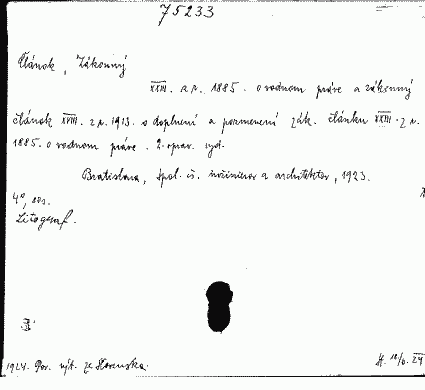 75233
Článok, Zákonný
XXIII. z r. 1885. o vodnom práve a zákonný
článok XVIII. z r. 1913. o doplnení a pozmenení zák. článku XXIII. z r.
1885. o vodnom práve. 2. oprav. vyd.
Bratislava, Spol. čs. inžinierov a architektov, 1923.
4°,
Litograf.
1924. Pov. výt. ze Slovenska.